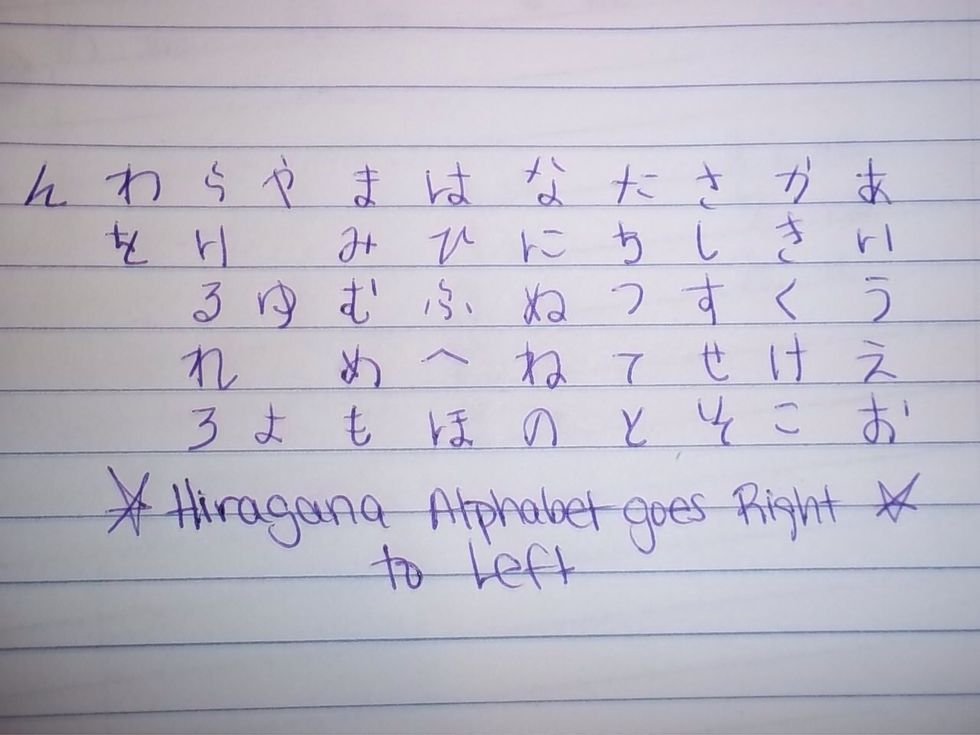 ん わ ら や ま は な た さ か あ
を り み ひ に ち し き い
る ゆ む ふ ぬ つ す く う
れ め へ ね て せ け え
ろ よ も ほ の と そ こ お
☆ Hiragana Alphabet goes Right ☆
to Left